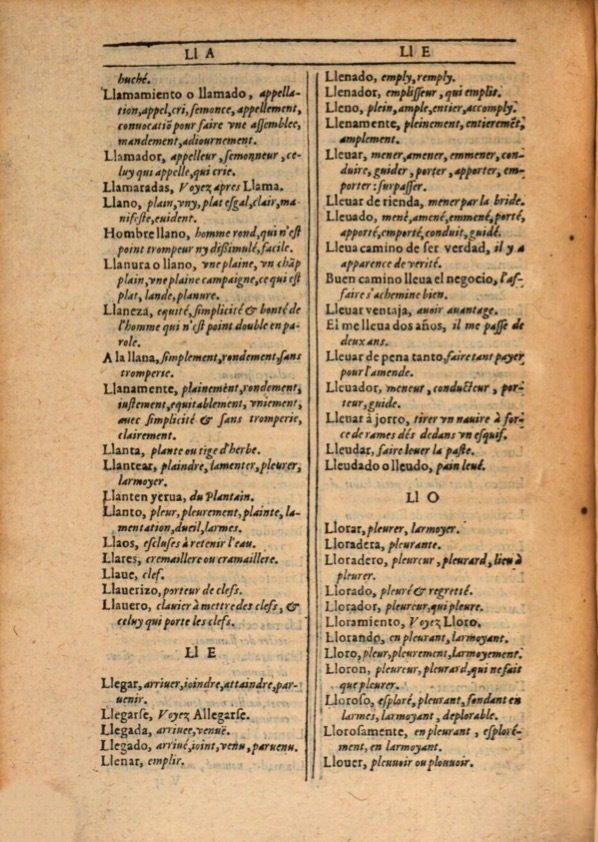 Ll A
huché.
Llamamiento o llamado, appella-
tion,appel,cri,ſemonce, appellement,
conuocatiõ pour faire vne aſſemblee,
mandement,adiournement.
Llamador, appelleur, ſemonneur, ce-
luy qui appelle,qui crie.
Llamaradas, Voyez apres Llama.
Llano, plain,vny,plat eſgal,clair,ma-
nifeſte,euident.
Hombre llano, homme rond,qui n'eſt
point trompeur ny diſſimulé,facile.
Llanura o llano, vne plaine, vn chãp
plain,vne plaine campaigne,ce qui eſt
plat, lande,planure.
Llaneza, equité,ſimplicité & bonté de
l'homme qui n'eſt point double en pa-
role.
A la llana,ſimplement,rondement,ſans
tromperie.
Llanamente, plainemẽt,rondement,
iuſtement,equitablement, vniement,
auec ſimplicité & ſans tromperie,
clairement.
Llanta, plante ou tige d'herbe.
Llantear, plaindre, lamenter,pleurer,
larmoyer.
Llanten yerua, du Plantain.
Llanto, pleur,pleurement,plainte, la-
mentation,dueil,larmes.
Llaos, eſcluſes à retenir l'eau.
Llares, cremaillere ou cramaillere.
Llaue, clef.
Llauerizo,porteur de clefs.
Llauero, clauier à mettre des clefs, &
celuy qui porte les clefs.
Ll E
Llegar, arriuer,ioindre,attaindre,par-
uenir.
Llegarſe, Voyez Allegarſe.
Llegada, arriuee,venuë.
Llegado, arriué,ioint,venu, paruenu.
Llenar, emplir.
Ll E
Llenado, emply,remply.
Llenador, empliſſeur, qui emplit.
Lleno, plein,ample,entier,accomply.
Llenamente, pleinement, entieremẽt,
amplement.
Lleuar, mener,amener, emmener, con-
duire, guider, porter, apporter, em-
porter : ſurpaſſer.
Lleuar de rienda, mener par la bride.
Lleuado, mené,amené,emmené,porté,
apporté,emporté,conduit,guidé.
Lleua camino de ſer verdad, il y a
apparence de verité.
Buen camino lleua el negocio, l'af-
faire s'achemine bien.
Lleuar ventaja, auoir auantage.
El me lleua dos años, il me paſſe de
deux ans.
Lleuar de pena tanto,faire tant payer
pour l'amende.
Lleuador, meneur, conducteur, por-
teur,guide.
Lleuar à jorro, tirer vn nauire à for-
ce de rames dés dedans vn eſquif.
Lleudar, faire leuer la paſte.
Lleudado o lleudo, pain leué.
Ll O
Llorar, pleurer, larmoyer.
Lloradera, pleurante.
Lloradero, pleureur, pleurard, lieu à
pleurer.
Llorado, pleuré & regretté.
Llorador, pleureur,qui pleure.
Lloramiento, Voyez Lloro.
Llorando, en pleurant, larmoyant.
Lloro, pleur,pleurement,larmoyement.
Lloron, pleureur, pleurard,qui ne fait
que pleurer.
Lloroſo, eſploré, pleurant, fondant en
larmes, larmoyant, deplorable.
Lloroſamente, en pleurant , eſploré-
ment, en larmoyant.
Llouer, pleuuoir ou plouuoir.